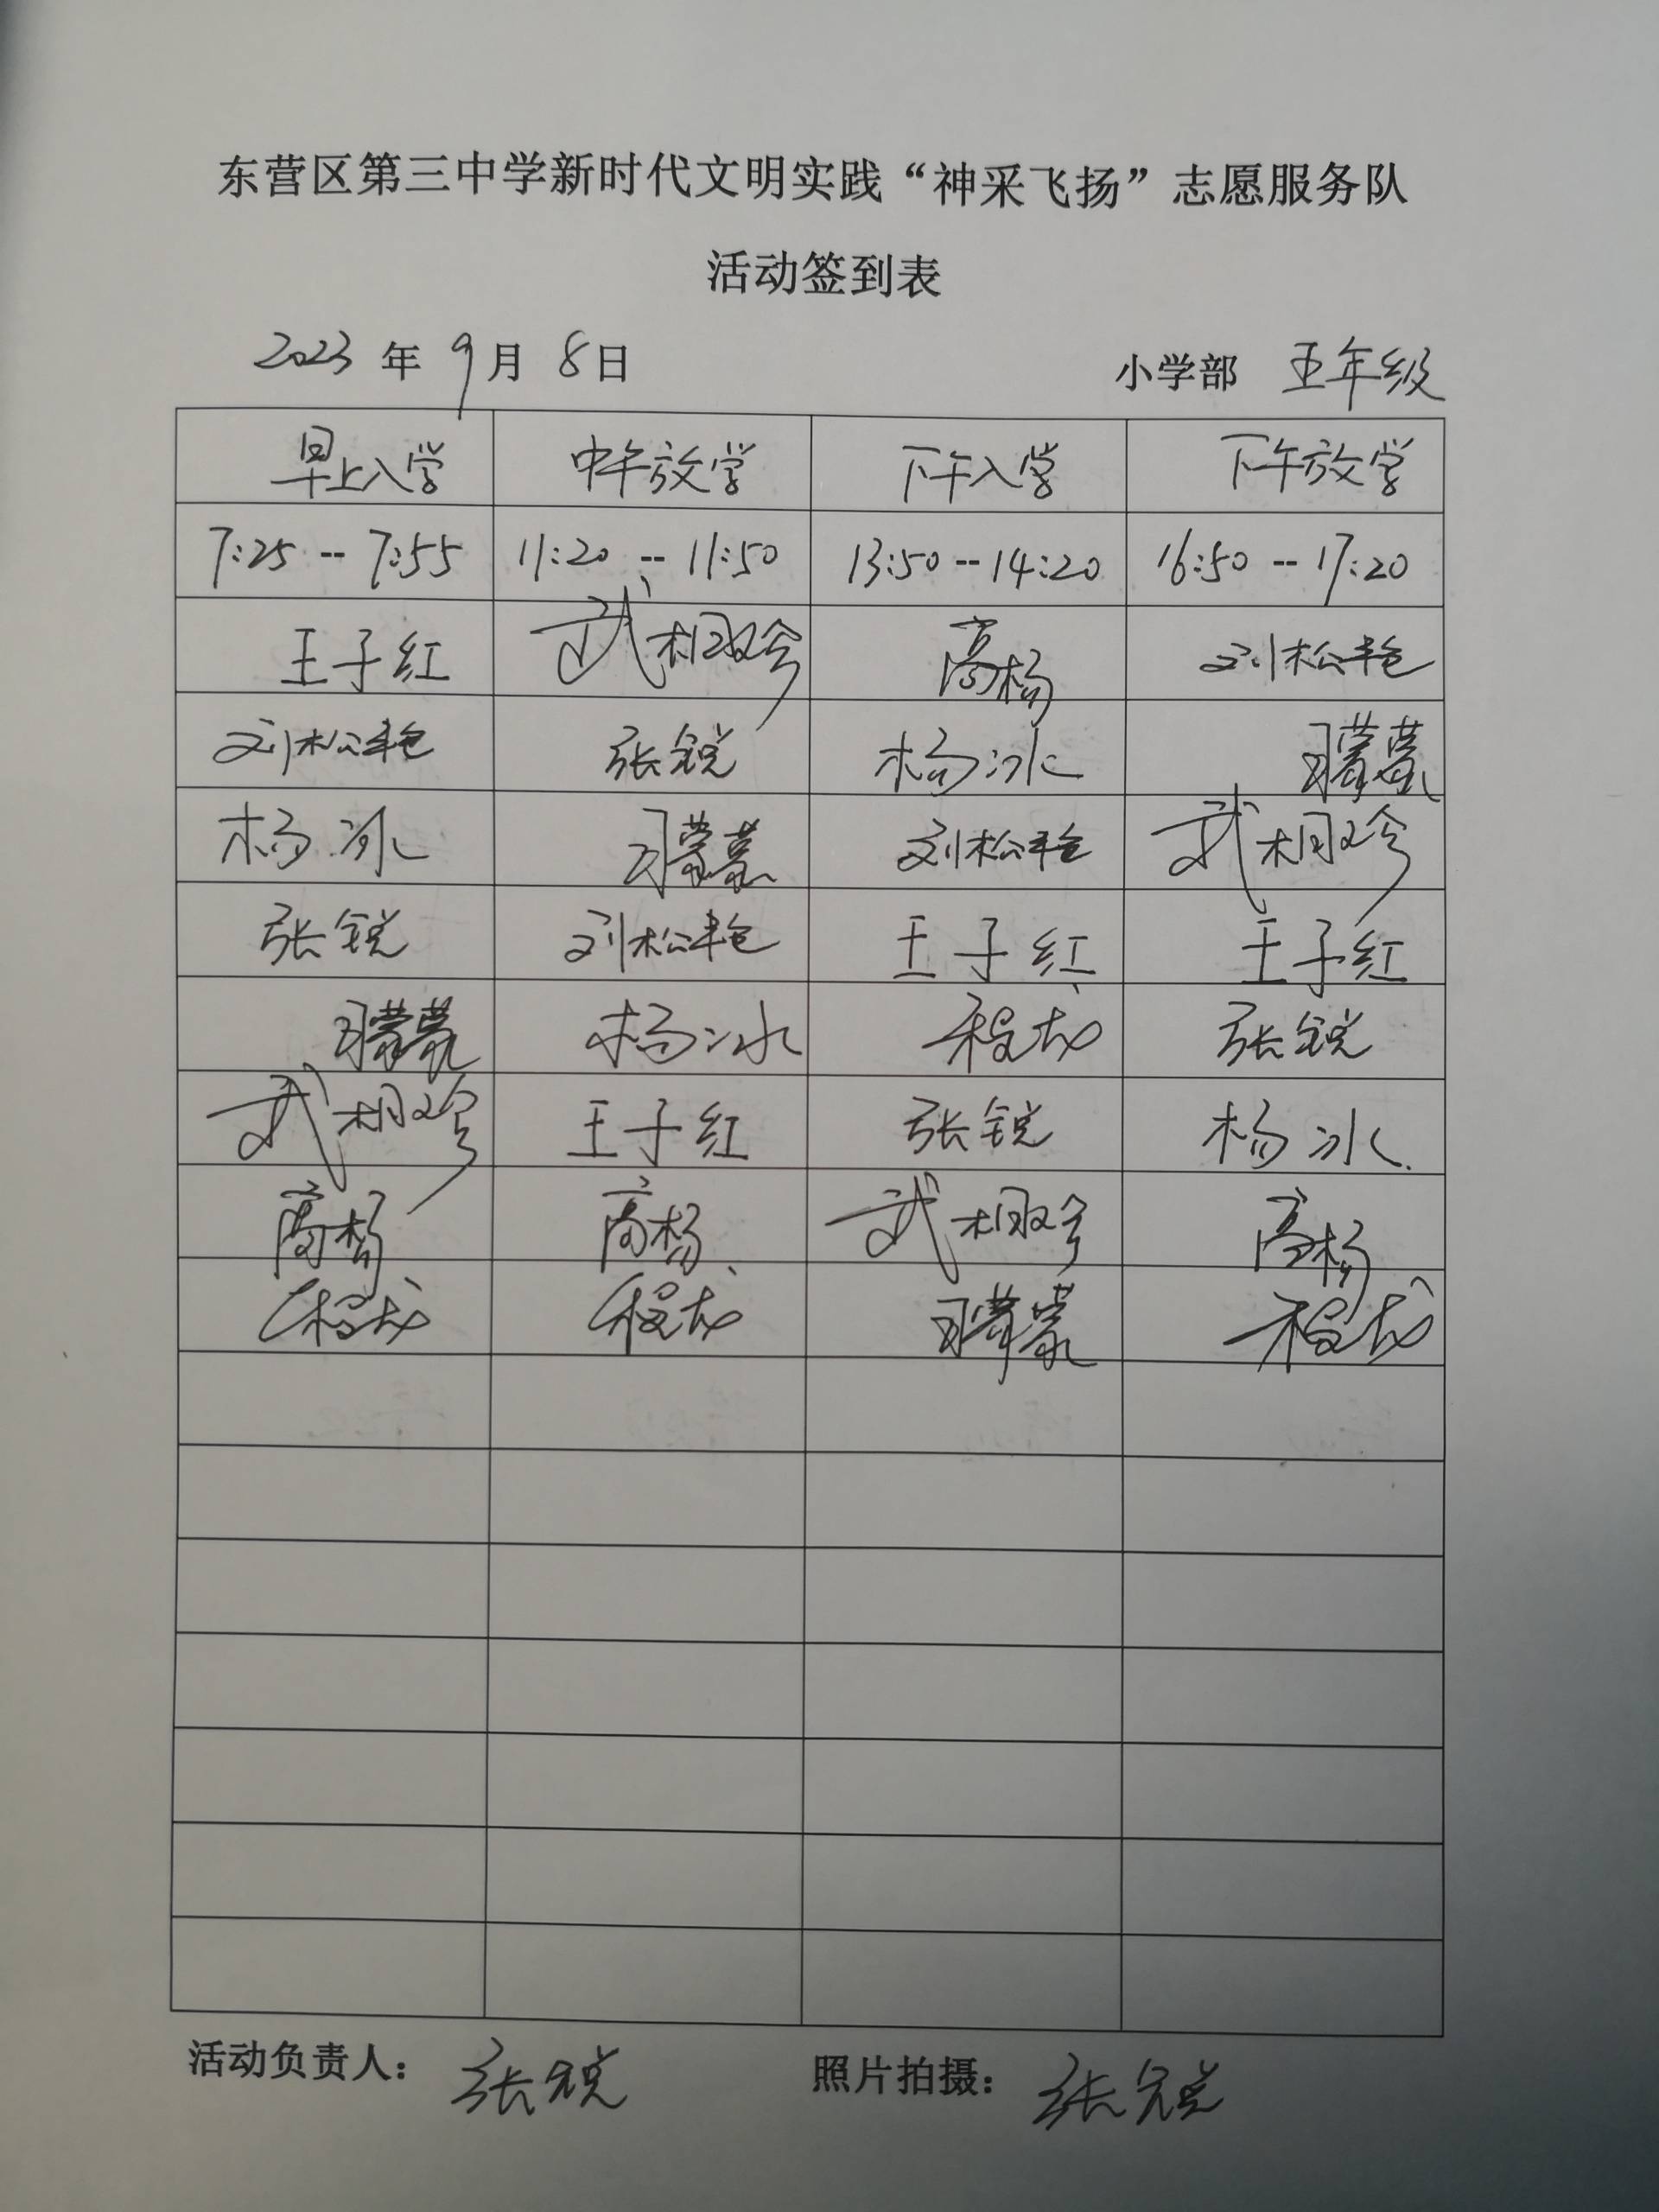 东营区第三中学新时代文明实践“神采飞扬”志愿服务队
活动签到表
2023 年 9月 8日 小学部 五年级
早上入学 中午放学 下午入学 下午放学
7:25 -- 7:55 11:20 -- 11:50 13:50 -- 14:20 16:50 -- 17:20
王子红 武相珍 高杨 刘松艳
刘松艳 张锐 杨冰
杨冰 刘松艳 武相珍
张锐 刘松艳 王子红 王子红
杨冰 程龙 张锐
武相珍 王子红 张锐 杨冰
高杨 高杨 武相珍 高杨
程龙 程龙 程龙
活动负责人: 张锐 照片拍摄: 张锐